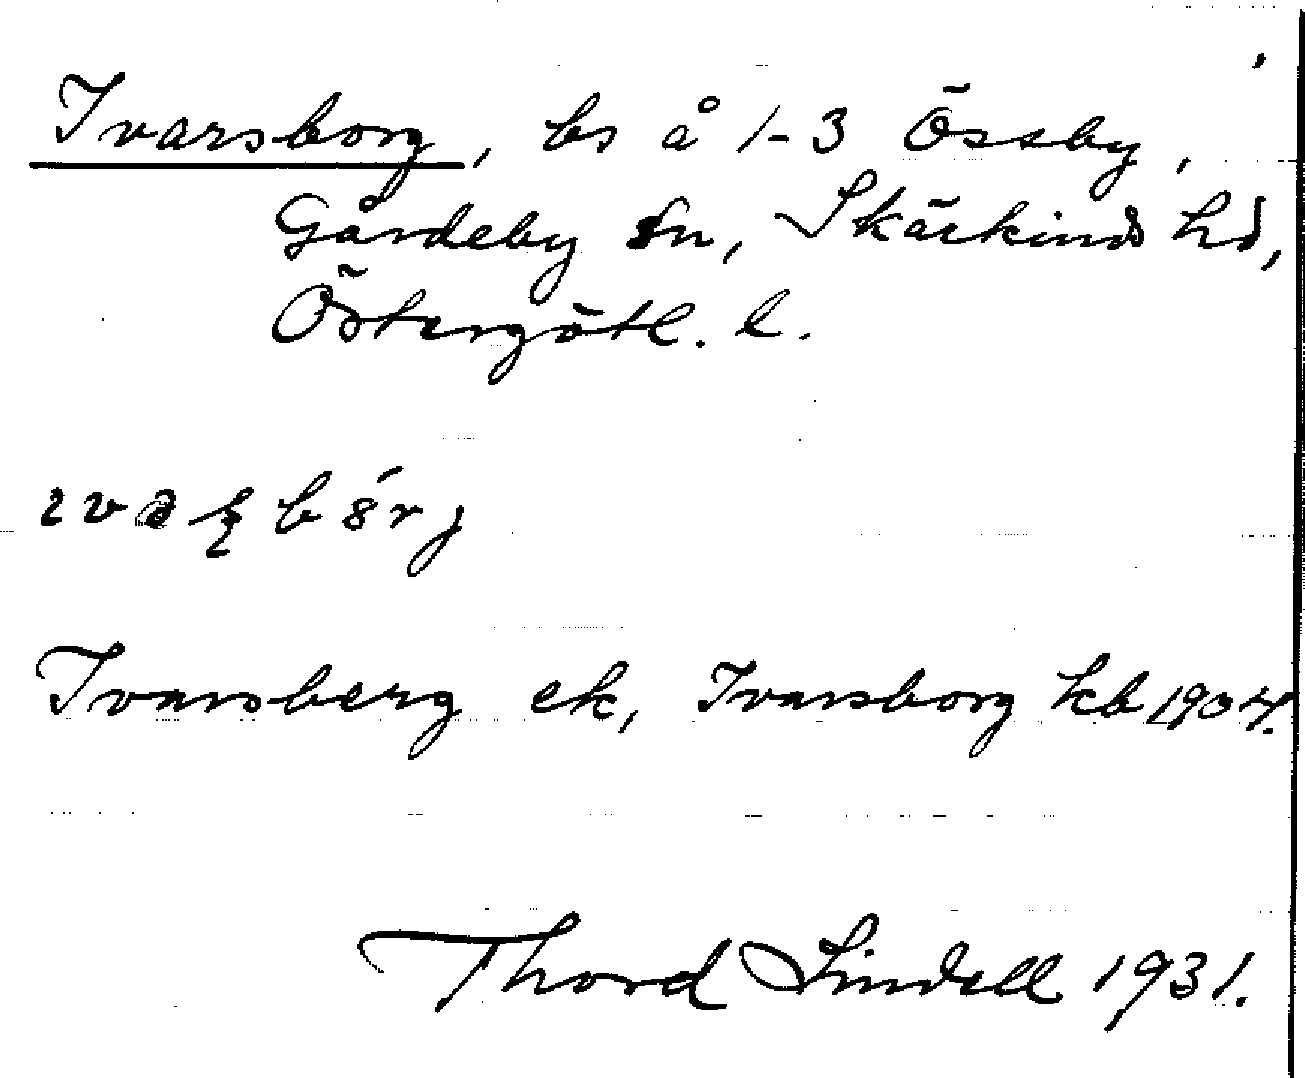 Ivarsborg, ls å 1-3 Össby,
Gårdeby sn, Skärkinds hd,
Östergötl. l.
Ivarsberg ek, Ivarsborg kb 1904.
Thord Lindell 1931.